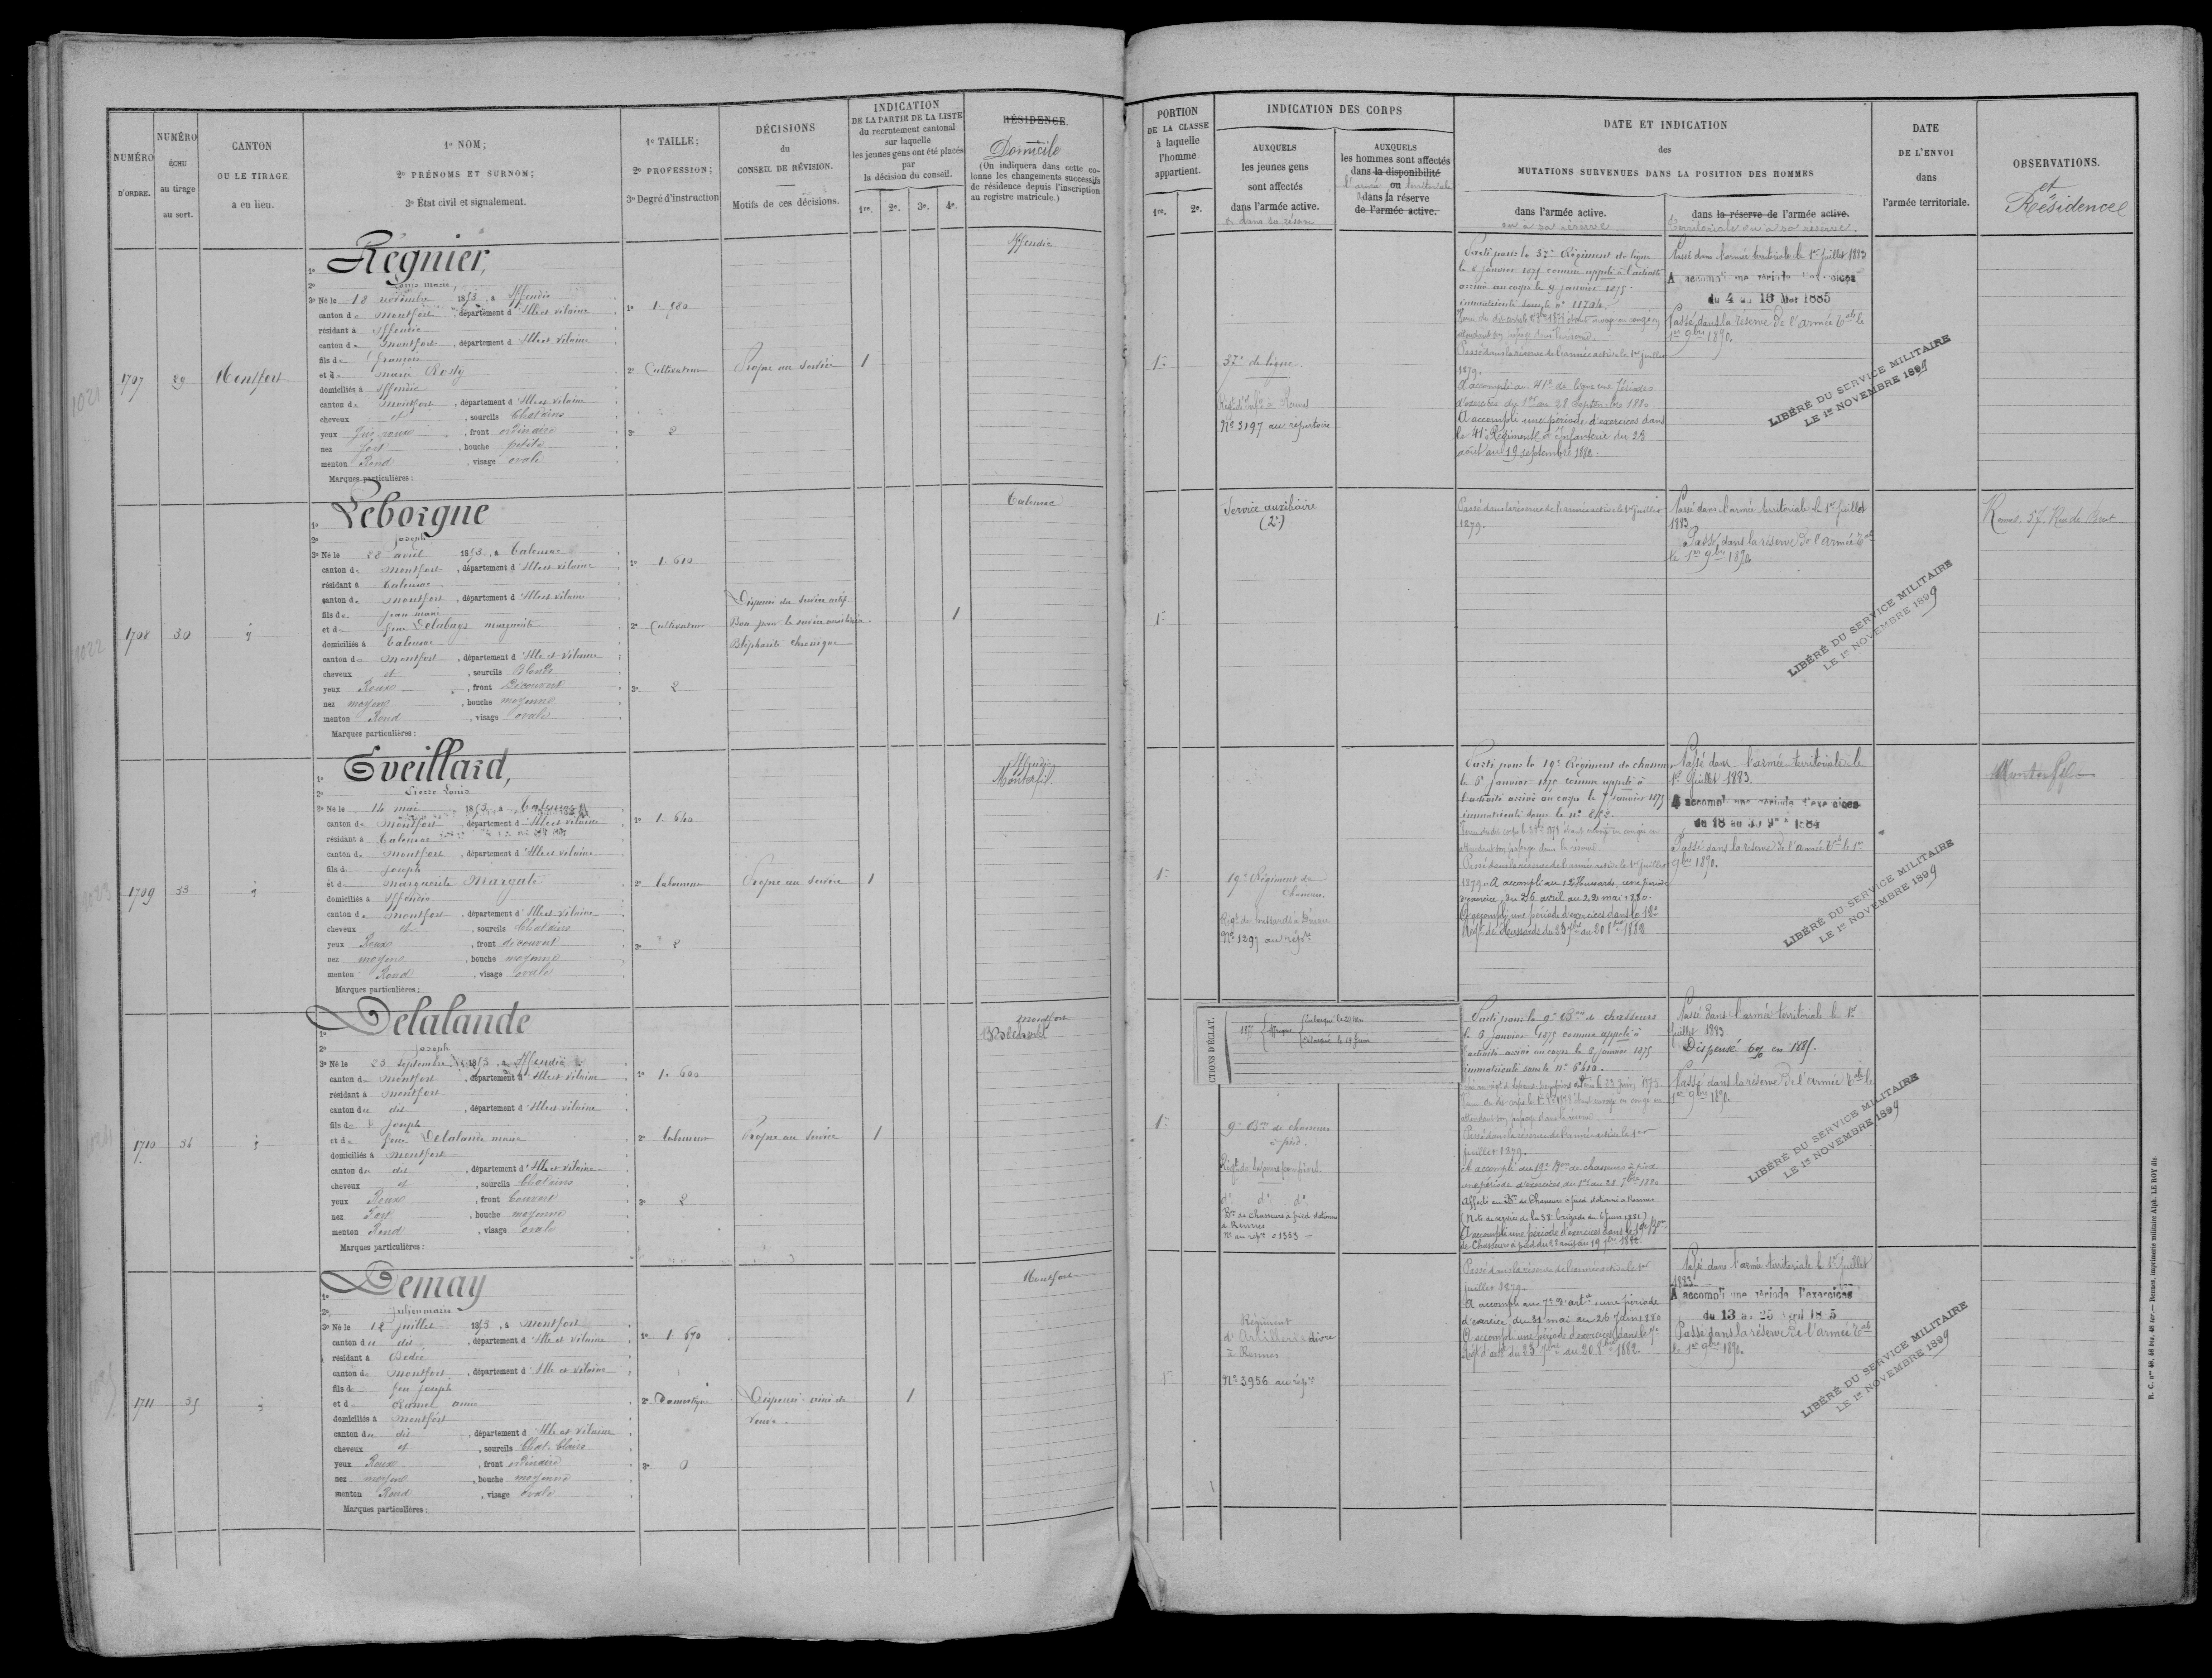 NUMÉRO
D'ORDRE.
NUMÉRO
ÉCHU
au tirage
au sort.
CANTON
OU LE TIRAGE
a eu lieu.
1º NOM;
2º PRÉNOMS ET SURNOM;
3º État civil et signalement.
1º TAILLE;
2º PROFESSION;
3º Degré d'instruction
DÉCISIONS
du
CONSEIL DE RÉVISION.
Motifs de ces décisions.
INDICATION
DE LA PARTIE DE LA LISTE
du recrutement cantonal
sur laquelle
les jeunes gens ont été placés
par
la décision du conseil.
1re. 2e. 3e. 4e.
RÉSIDENCE.
Domicile
(On indiquera dans cette co-
lonne les changements successifs
de résidence depuis l'inscription
au registre matricule.)
PORTION
DE LA CLASSE
à laquelle
l'homme
appartient.
1re. 2e.
INDICATION DES CORPS
AUXQUELS
les jeunes gens
sont affectés
dans l'armée active.
AUXQUELS
les hommes sont affectés
dans la disponibilité
ou territoriale
dans la réserve
de l'armée active.
DATE ET INDICATION
des
MUTATIONS SURVENUES DANS LA POSITION DES HOMMES
dans l'armée active.
ou à sa réserve
dans la réserve de l'armée active.
Territoriale ou à sa réserve.
DATE
DE L'ENVOI
dans
l'armée territoriale.
OBSERVATIONS.
et
Résidence
1021
1707
29
Montfort
1º Regnier,
2º Louis Marie
3º Né le 18 novembre 1853, à Iffendic
canton de Montfort, département d'Ille et Vilaine
résidant à Iffendic
canton de Montfort, département d'Ille et Vilaine
fils de François
et de Marie Rosty
domiciliés à Iffendic
canton de Montfort, département d'Ille et Vilaine
cheveux et, sourcils Chatains
yeux Gris roux, front ordinaire
nez fort, bouche petite
menton Rond, visage ovale
Marques particulières :
1º 1. 580
2º Cultivateur
3º 2
Propre au service
1
Iffendic
1re
37e de ligne.
Régt d'Infie à Rennes
No 3197 au répertoire
Parti pour le 37e Régiment de ligne
le 6 Janvier 1875 comme appelé à l'activité
arrivé au corps le 9 Janvier 1875
immatriculé sous le no 11704
Passé dans la réserve de l'armée active le 1er juillet
1879.
A accompli au 41e de ligne une période
d'exercices du 1er au 28 Septembre 1880
A accompli une période d'exercices dans
le 41e Régiment d'Infanterie du 23
août au 19 septembre 1882.
Passé dans l'armée territoriale le 1er juillet 1883
A accompli une période d'exercices
du 4 au 18 Mai 1885
Passé dans la réserve de l'armée Tale le
1er 9bre 1890.
LIBÉRÉ DU SERVICE MILITAIRE
LE 1er NOVEMBRE 1899
1022
1708
30
1º Leborgne
2º Joseph
3º Né le 28 avril 1853, à Talensac
canton de Montfort, département d'Ille et Vilaine
résidant à Talensac
canton de Montfort, département d'Ille et Vilaine
fils de Jean Marie
et de feue Delabays Marguerite
domiciliés à Talensac
canton de Montfort, département d'Ille et Vilaine
cheveux et, sourcils Blonds
yeux Roux, front Découvert
nez moyen, bouche moyenne
menton Rond, visage ovale
Marques particulières :
1º 1. 610
2º Cultivateur
3º 2
Dispensé du service actif.
Bon pour le service auxiliaire.
Blépharite chronique
1
Talensac
1re
Service auxiliaire
(2e)
Passé dans la réserve de l'armée active le 1er juillet
1879.
Passé dans l'armée territoriale le 1er juillet
1883
Passé dans la réserve de l'armée Tale
le 1er 9bre 1890
LIBÉRÉ DU SERVICE MILITAIRE
LE 1er NOVEMBRE 1899
Rennes. 57. Rue de Brest
1023
1709
33
1º Eveillard,
2º Pierre Louis
3º Né le 14 mai 1853, à Talensac
canton de Montfort, département d'Ille et Vilaine
résidant à Talensac
canton de Montfort, département d'Ille et Vilaine
fils de Joseph
et de Marguerite Margate
domiciliés à Iffendic
canton de Montfort, département d'Ille et Vilaine
cheveux et, sourcils Chatains
yeux Roux, front découvert
nez moyen, bouche moyenne
menton Rond, visage ovale
Marques particulières :
1º 1. 640
2º Laboureur
3º 2
Propre au service
1
Iffendic
Monterfil
1re
19e Régiment de
Chasseurs.
Régt de hussards à Dinan
No 1297 au répre
Parti pour le 19e Régiment de chasseurs
le 5 Janvier 1875 comme appelé à
l'activité arrivé au corps le 7 Janvier 1875
immatriculé sous le no
Passé dans la réserve de l'armée active le 1er juillet
1879. A accompli au 12e Hussards, une période
d'exercice, du 26 avril au 22 mai 1880.
A accompli une période d'exercices dans le 12e
Régt de Hussards du 23 7bre au 20 8bre 1882
Passé dans l'armée territoriale le
1er Juillet 1883.
A accompli une période d'exercices
du 18 au 30 9bre 1884
Passé dans la réserve de l'armée Tale le 1er
9bre 1890.
LIBÉRÉ DU SERVICE MILITAIRE
LE 1er NOVEMBRE 1899
Monterfil
1024
1710
34
1º Delalande
2º Joseph
3º Né le 23 septembre 1853, à Iffendic
canton de Montfort, département d'Ille et Vilaine
résidant à Montfort
canton du dit, département d'Ille et Vilaine
fils de Joseph
et de feue Delalande Marie
domiciliés à Montfort
canton du dit, département d'Ille et Vilaine
cheveux et, sourcils Chatains
yeux Roux, front Couvert
nez Fort, bouche moyenne
menton Rond, visage ovale
Marques particulières :
1º 1. 600
2º Laboureur
3º 2
Propre au service
1
Montfort
1re
CTIONS D'ÉCLAT.
1877
Afrique
9e Bon de chasseurs
à pied.
Régt de Sapeurs pompiers.
do do do
Bon de chasseurs à pied stationné
à Rennes
No au répre 01353
Parti pour le 9e Bon de chasseurs
le 6 Janvier 1875 comme appelé à
l'activité arrivé au corps le 6 Janvier 1875
immatriculé sous le no
Passé dans la réserve de l'armée active le 1er
juillet 1879.
A accompli au 19e Bon de chasseurs à pied
une période d'exercices du 1er au 28 7bre 1880
Affecté au Bon de Chasseurs à pied stationné à Rennes
(Note de service de la 38e brigade du 6 Juin 1881)
A accompli une période d'exercices dans le 19e Bon
de Chasseurs à pied du 23 août au 19 7bre 1882
Passé dans l'armée territoriale le 1er
juillet 1883
Dispensé 6 % en 1885.
Passé dans la réserve de l'armée Tale le
1er 9bre 1890.
LIBÉRÉ DU SERVICE MILITAIRE
LE 1er NOVEMBRE 1899
1025
1711
35
1º Demay
2º Julien Marie
3º Né le 12 juillet 1853, à Montfort
canton du dit, département d'Ille et Vilaine
résidant à Bédée
canton de Montfort, département d'Ille et Vilaine
fils de feu Joseph
et de Ramel Anne
domiciliés à Montfort
canton du dit, département d'Ille et Vilaine
cheveux et, sourcils Chat. Clairs
yeux Roux, front ordinaire
nez moyen, bouche moyenne
menton Rond, visage ovale
Marques particulières :
1º 1. 670
2º Domestique
3º 0
Dispensé ainé de
veuve.
1
Montfort
1re
Régiment
d'Artillerie divre
à Rennes
No 3956 au répre
Passé dans la réserve de l'armée active le 1er
juillet 1879.
A accompli au 7e d'artie une période
d'exercice du 31 mai au 26 Juin 1880
A accompli une période d'exercices dans le 7e
Régt d'artie du 23 7bre au 20 8bre 1882.
Passé dans l'armée territoriale le 1er Juillet
1883.
A accompli une période d'exercices
du 13 au 25 Avril 1885
Passé dans la réserve de l'armée Tale
le 1er 9bre 1890.
LIBÉRÉ DU SERVICE MILITAIRE
LE 1er NOVEMBRE 1899